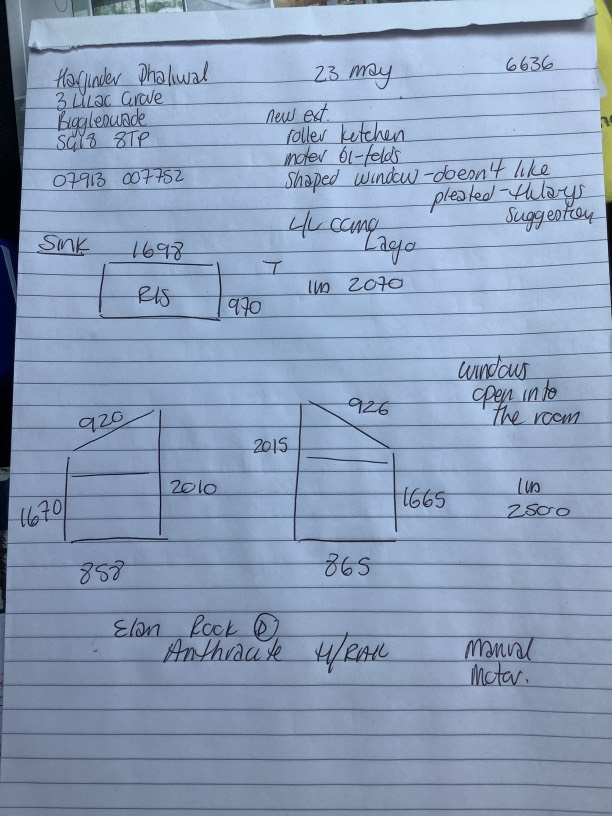 Harjinder Dhaliwal 23 may 6636
3 Lilac Grove
Biggleswade new ext.
SG18 8TP roller kitchen
moter bi-folds
07913 007752 shaped window-doesn't like
pleated-
suggestion
Lago
Sink 1698
T
R/S 970 1m 2070
windows
open into
the room
920 926
2015
1670 2010 1665 1m
2500
858 865
Elan Rock D
Anthracite H/RAIL Manual
Motor.